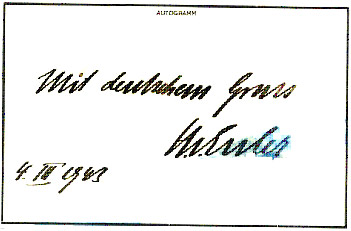 AUTOGRAMM
Mit deutschem Gruss
4. III 1943